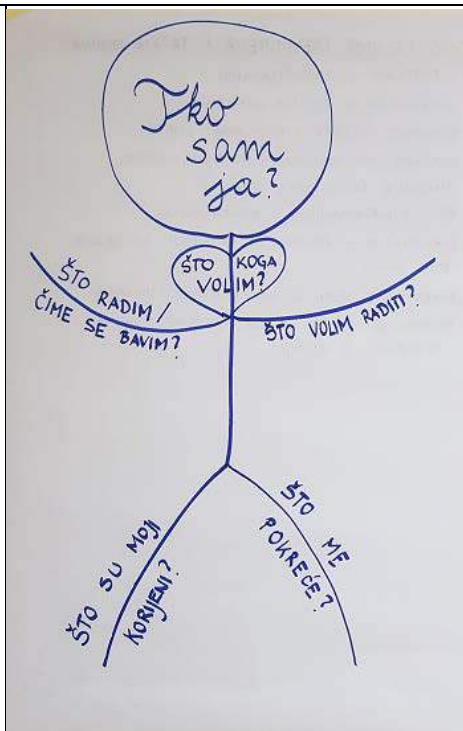 Tko
sam
ja?
ŠTO KOGA
VOLIM?
ŠTO RADIM/
ČIME SE BAVIM?
ŠTO VOLIM RADITI?
ŠTO SU MOJI
KORIJENI?
ŠTO ME
POKREĆE?